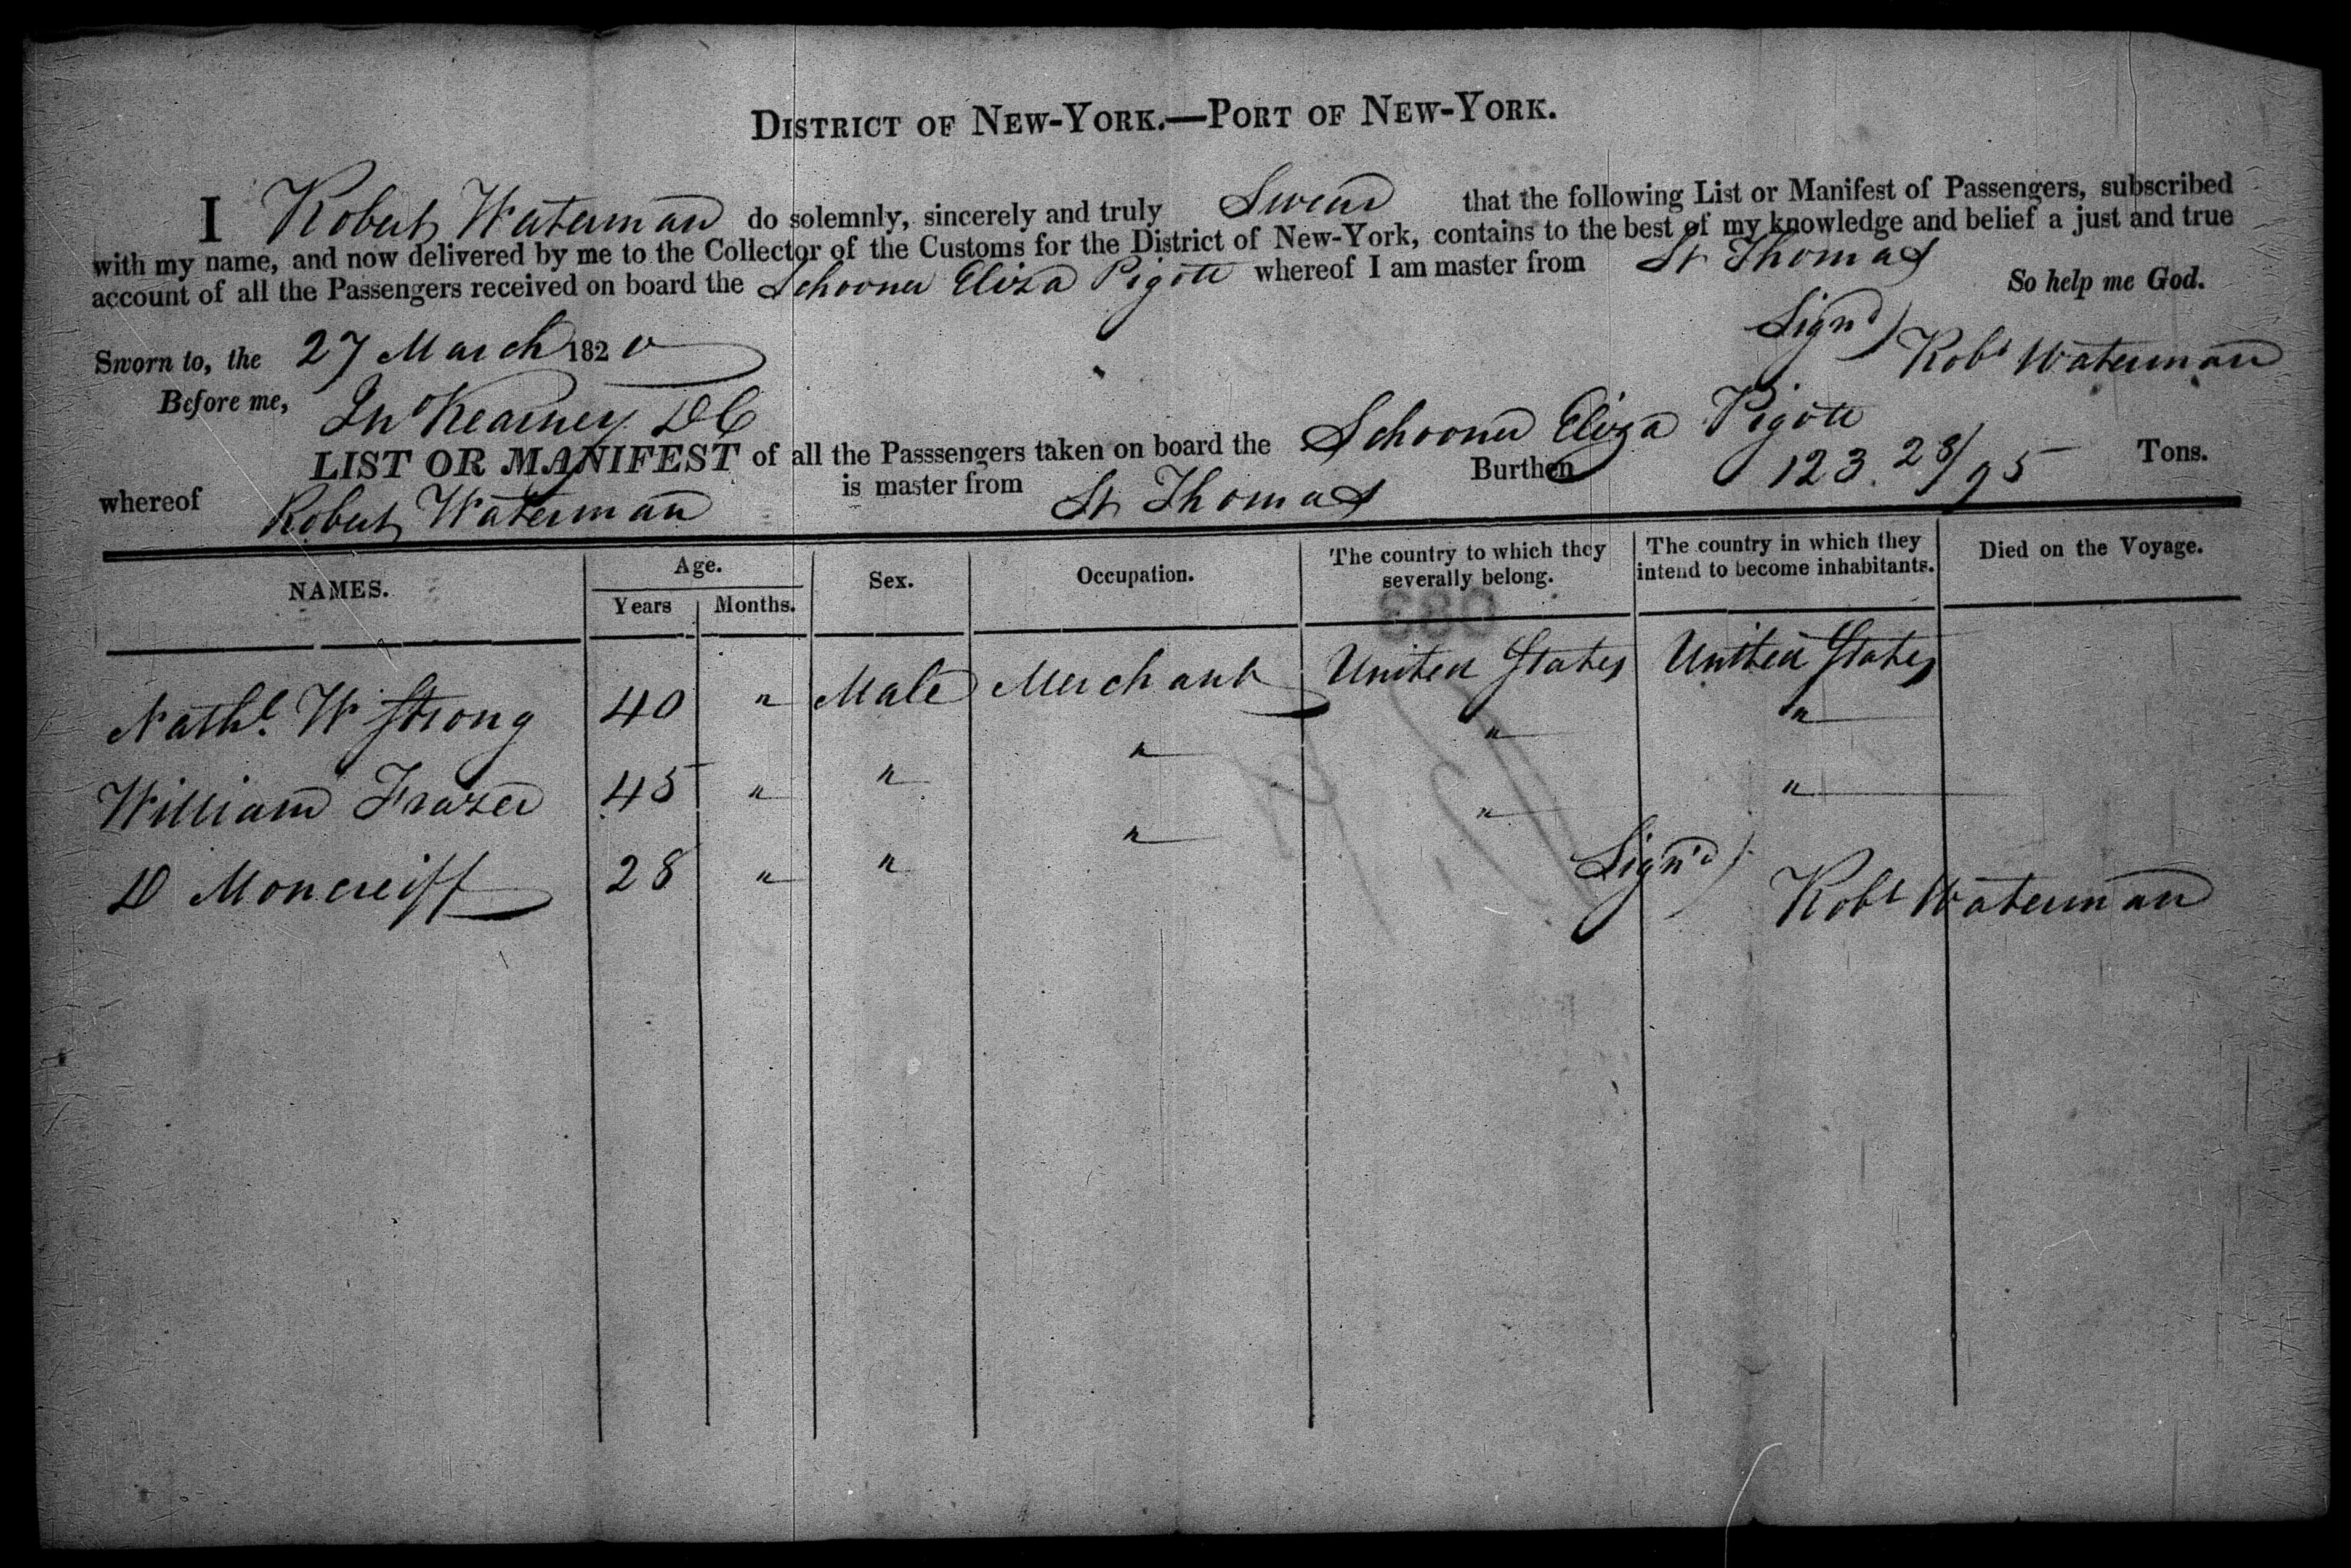 DISTRICT OF NEW-YORK.—PORT OF NEW-YORK.
I Robert Waterman do solemnly, sincerely and truly Swear that the following List or Manifest of Passengers, subscribed
with my name, and now delivered by me to the Collector of the Customs for the District of New-York, contains to the best of my knowledge and belief a just and true
account of all the Passengers received on board the Schooner Eliza Pigott whereof I am master from St Thomas So help me God.
Sworn to, the 27 March 1820 Signd) Robt Waterman
Before me, Jno Kearney DC
LIST OR MANIFEST of all the Passsengers taken on board the Schooner Eliza Pigott
whereof Robert Waterman is master from St Thomas Burthen 123. 28/95 Tons.
NAMES. Age. Years Months. Sex. Occupation. The country to which they severally belong. The country in which they intend to become inhabitants. Died on the Voyage.
Nathl. W Strong 40 " Male Merchant United States United States
William Frazer 45 " " " " "
D Moncreiff 28 " " " " "
Sign'd) Robt Waterman